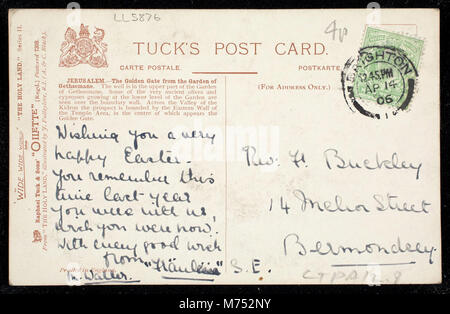 LL5876
4p
TUCK'S POST CARD.
CARTE POSTALE.
POSTKARTE.
(FOR ADDRESS ONLY.)
BRIGHTON
12.45 PM
AP 14
06
JERUSALEM.—The Golden Gate from the Garden of
Gethsemane. The well is in the upper part of the Garden
of Gethsemane. Some of the very ancient olives and
cypresses growing at the lower level of the Garden are
seen over the boundary wall. Across the Valley of the
Kidron the prospect is bounded by the Eastern Wall of
the Temple Area, in the centre of which appears the
Golden Gate.
"WIDE WIDE WORLD" "THE HOLY LAND." Series II.
Raphael Tuck & Sons' "OILETTE" (Regd.) Postcard
From "THE HOLY LAND," illustrated by J. Fulleylove, R.I. (A. & C. Black).
Wishing you a very
happy Easter—
You remember this
time last year
you were with us,
wish you were now.
With every good wish
from "Fräulein"
Printed in
Rev. H. Buckley
14 Melior Street
Bermondsey
S.E.
alamy
M752NY